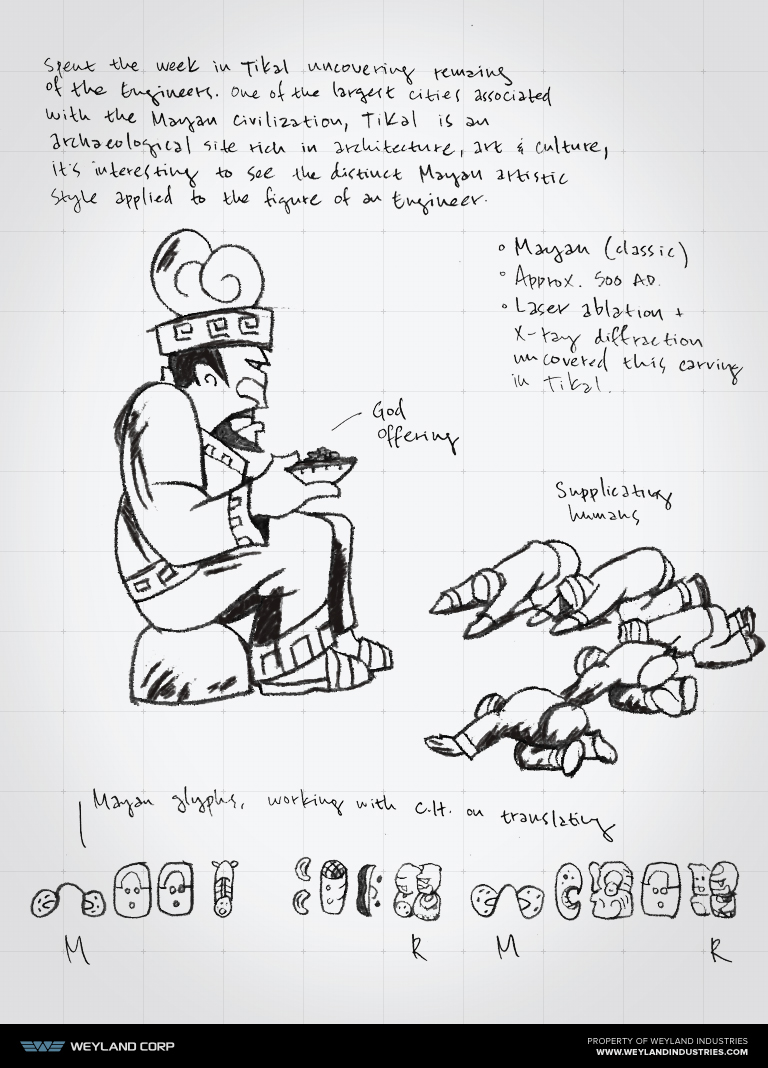 Spent the week in Tikal uncovering remains
of the Engineers. One of the largest cities associated
with the Mayan civilization, Tikal is an
archaeological site rich in architecture, art & culture,
it's interesting to see the distinct Mayan artistic
style applied to the figure of an Engineer.
° Mayan (classic)
° Approx. 500 A.D.
° Laser ablation +
X-ray diffraction
uncovered this carving
in Tikal.
God
offering
Supplicating
humans
Mayan glyphs, working with C.H. on translating
M R M R
WEYLAND CORP
PROPERTY OF WEYLAND INDUSTRIES
WWW.WEYLANDINDUSTRIES.COM